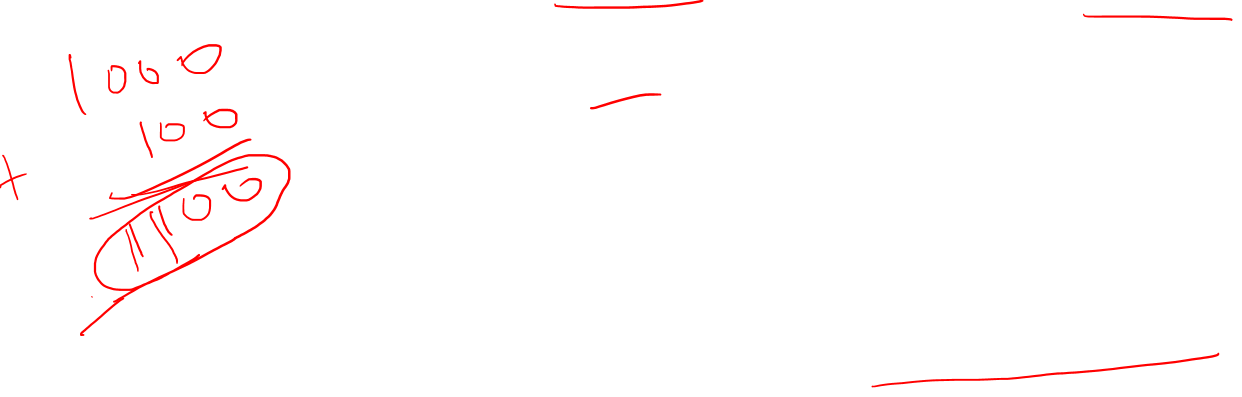 1000
100
+
1100